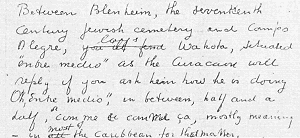 Between Blenheim, the seventeenth
Century Jewish cemetery and Campo
Alegre, you'll find Cas's Wakota, situated
"entre medio" as the Curacaon will
reply if you ask him how he is doing
Oh, entre medio", in between, half and a
half, comme ci comme ça, mostly meaning
in most all the Caribbean for that matter,